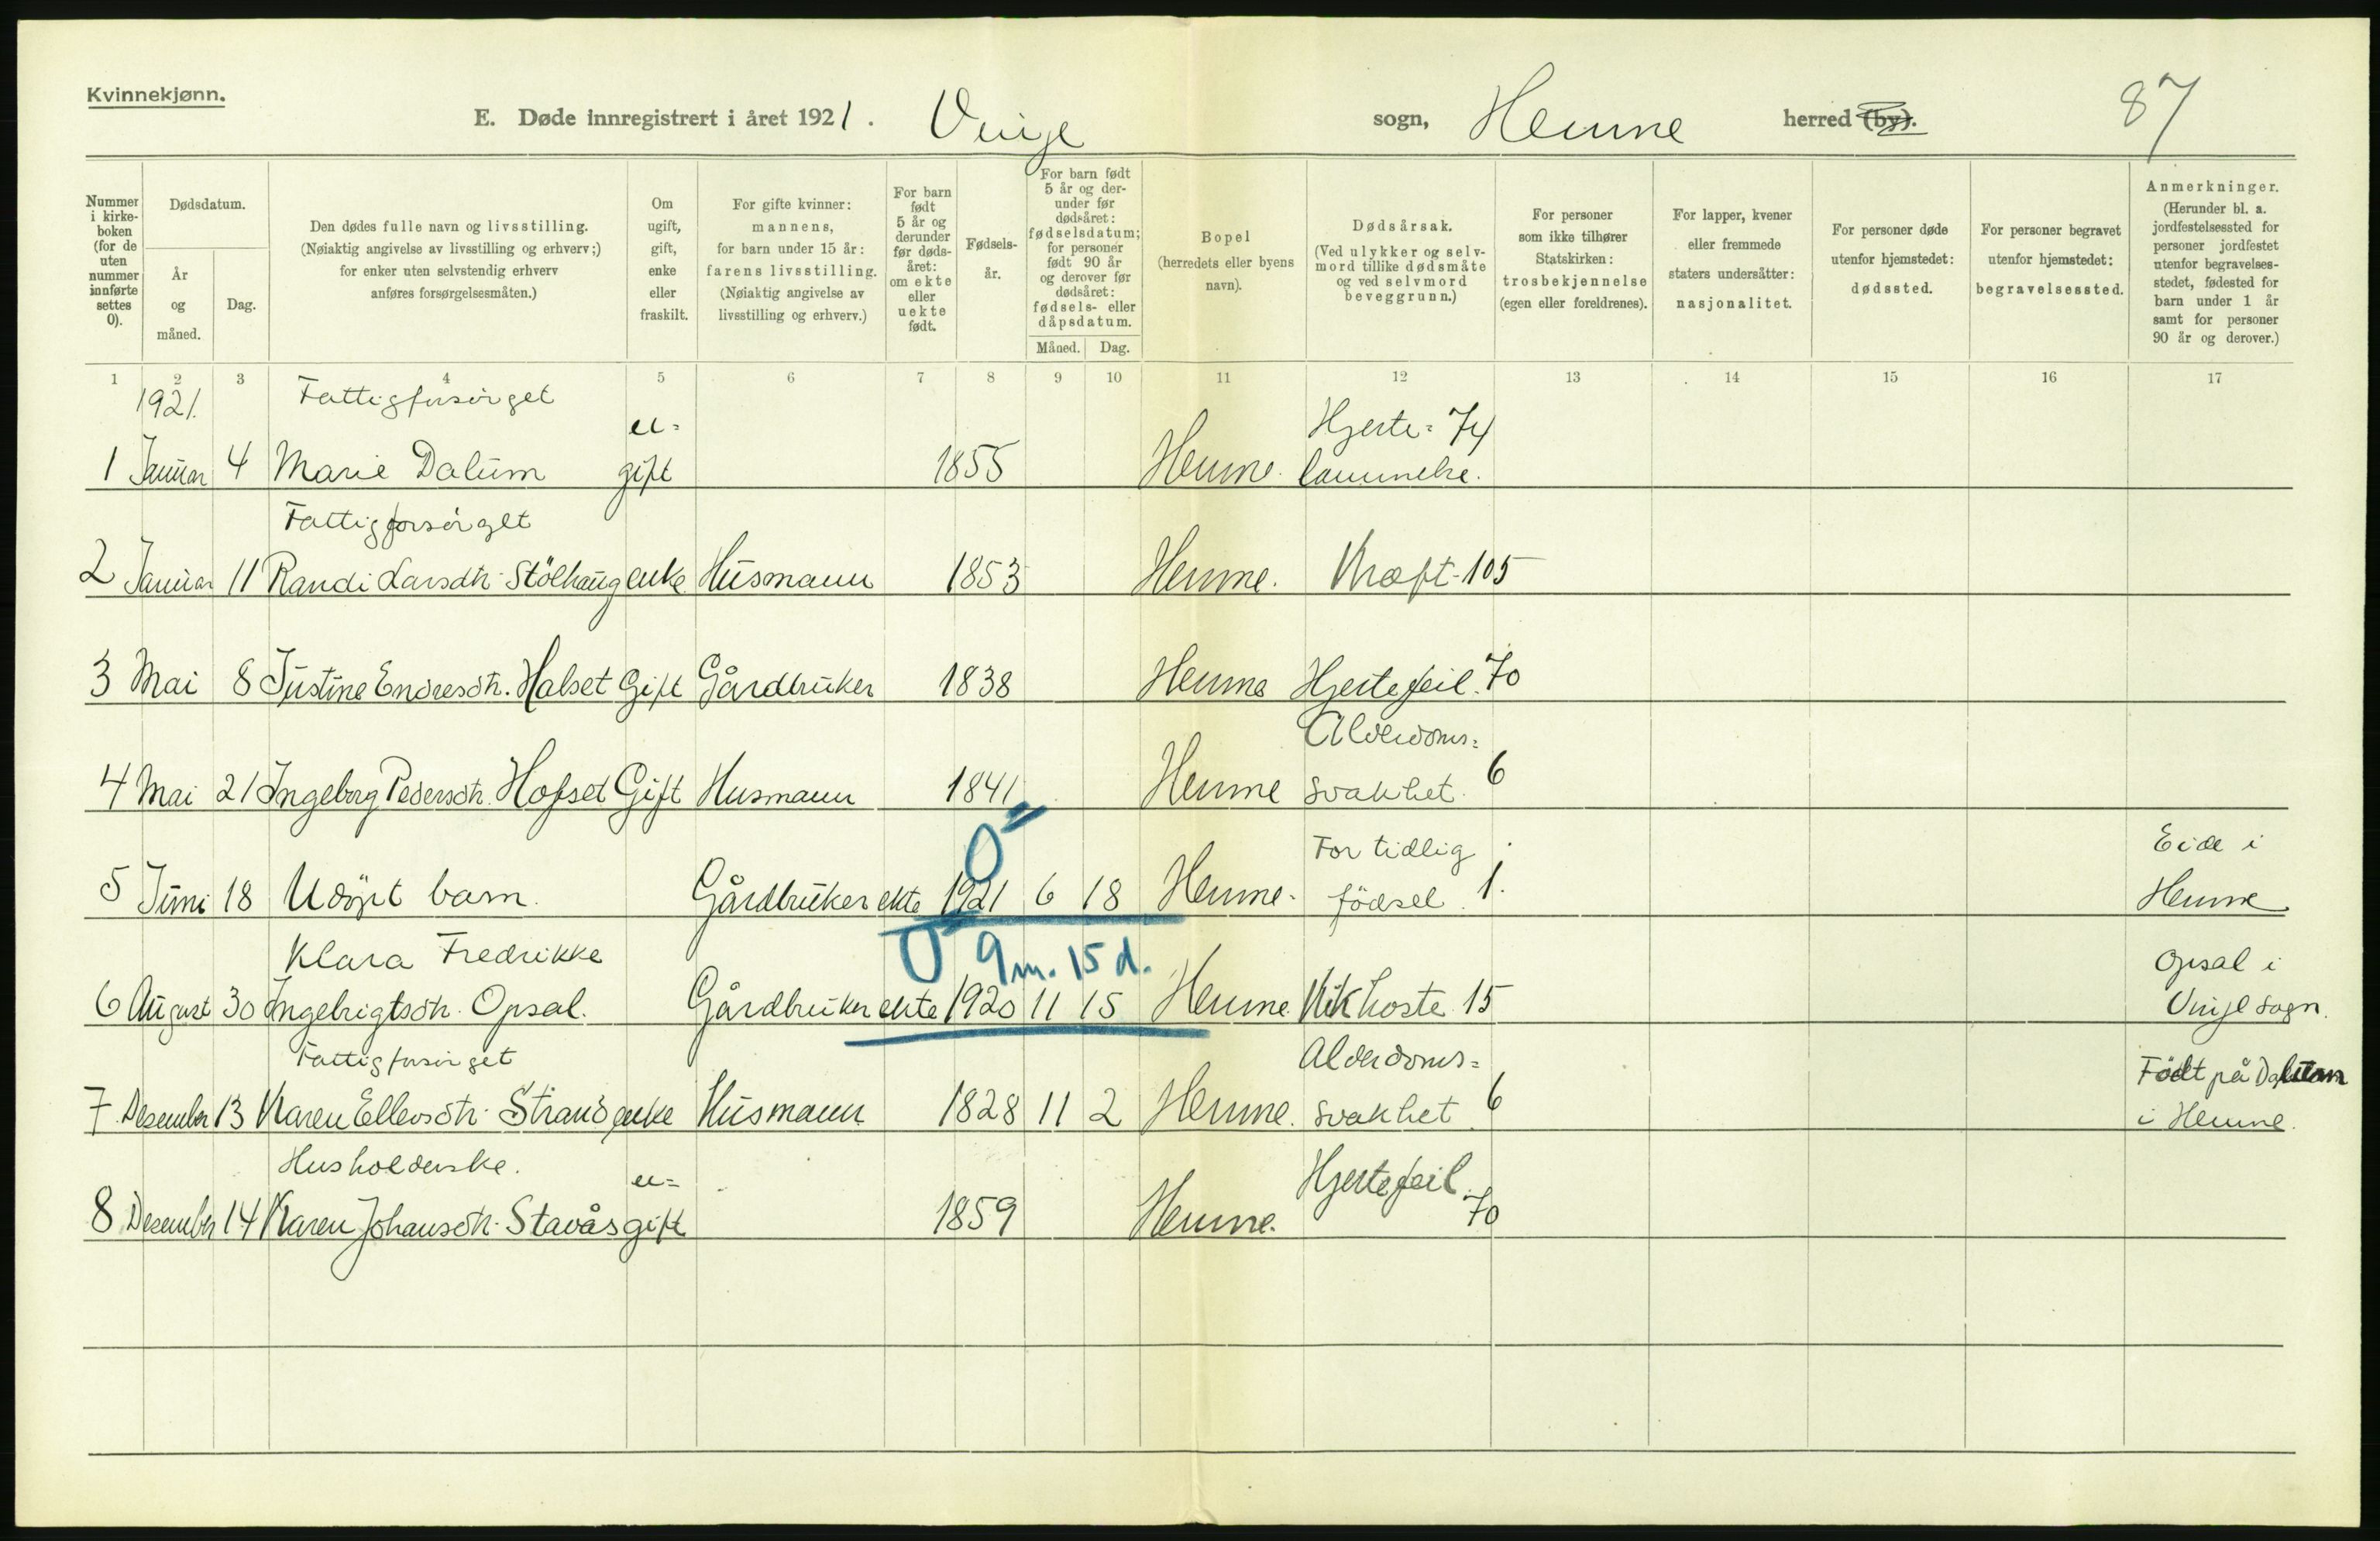 Kvinnekjønn.
E. Døde innregistrert i året 1921. Vinje sogn, Hemne herred (by). 87
Nummer i kirkeboken (for de uten nummer innførte settes 0).
Dødsdatum.
År og måned.
Dag.
Den dødes fulle navn og livsstilling. (Nøiaktig angivelse av livsstilling og erhverv;) for enker uten selvstendig erhverv anføres forsørgelsesmåten.)
Om ugift, gift, enke eller fraskilt.
For gifte kvinner: mannens, for barn under 15 år: farens livsstilling. (Nøiaktig angivelse av livsstilling og erhverv.)
For barn født 5 år og derunder før dødsåret: om ekte eller uekte født.
Fødselsår.
For barn født 5 år og derunder før dødsåret: fødselsdatum; for personer født 90 år og derover før dødsåret: fødsels- eller dåpsdatum.
Måned. Dag.
Bopel (herredets eller byens navn).
Dødsårsak. (Ved ulykker og selvmord tillike dødsmåte og ved selvmord beveggrunn.)
For personer som ikke tilhører Statskirken: trosbekjennelse (egen eller foreldrenes).
For lapper, kvener eller fremmede staters undersåtter: nasjonalitet.
For personer døde utenfor hjemstedet: dødssted.
For personer begravet utenfor hjemstedet: begravelsessted.
Anmerkninger. (Herunder bl. a. jordfestelsessted for personer jordfestet utenfor begravelsesstedet, fødested for barn under 1 år samt for personer 90 år og derover.)
1 2 3 4 5 6 7 8 9 10 11 12 13 14 15 16 17
1921. Fattigforsörget u= Hjerte= 74
1 Januar 4 Marie Dalum gift 1855 Hemne. lammelse.
Fattigforsörget
2 Januar 11 Randi Larsdtr. Stölhaug enke Husmann 1853 Hemne. Kræft 105
3 Mai 8 Justine Endresdtr. Halset Gift Gårdbruker 1838 Hemne Hjertefeil. 70
Alderdoms=
4 Mai 21 Ingeborg Pedersdtr. Hofset Gift Husmann 1841 Hemne svakhet. 6
0 For tidlig Eide i
5 Juni 18 Udöpt barn. Gårdbruker ekte 1921 6 18 Hemne. födsel. 1. Hemne
Klara Fredrikke 0 9 m. 15 d. Opsal i
6 August 30 Ingebrigtsdtr. Opsal. Gårdbruker ekte 1920 11 15 Hemne. Kikhoste 15 Vinje sogn.
Fattigforsörget Alderdoms= Födt på Dalum
7 Desember 13 Karen Ellevsdtr. Strand enke Husmann 1828 11 2 Hemne. svakhet 6 i Hemne.
Husholderske. u= Hjertefeil. 70
8 Desember 14 Karen Johansdtr. Stavås gift 1859 Hemne.